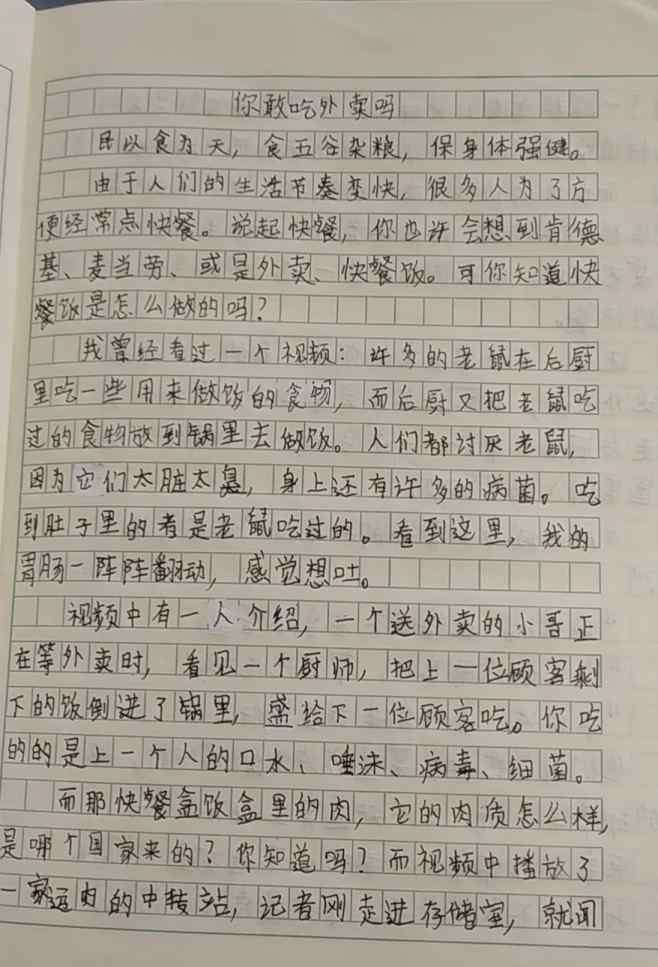 你敢吃外卖吗
民以食为天，食五谷杂粮，保身体强健。
由于人们的生活节奏变快，很多人为了方
便经常点快餐。说起快餐，你也许会想到肯德
基、麦当劳、或是外卖、快餐饭。可你知道快
餐饭是怎么做的吗？
我曾经看过一个视频：许多的老鼠在后厨
里吃一些用来做饭的食物，而后厨又把老鼠吃
过的食物放到锅里去做饭。人们都讨厌老鼠，
因为它们太脏太臭，身上还有许多的病菌。吃
到肚子里的者是老鼠吃过的。看到这里，我的
胃肠一阵阵翻动，感觉想吐。
视频中有一人介绍，一个送外卖的小哥正
在等外卖时，看见一个厨师，把上一位顾客剩
下的饭倒进了锅里，盛给下一位顾客吃。你吃
的的是上一个人的口水、唾沫、病毒、细菌。
而那快餐盒饭盒里的肉，它的肉质怎么样，
是哪个国家来的？你知道吗？而视频中播放了
一家运肉的中转站，记者刚走进存储室，就闻